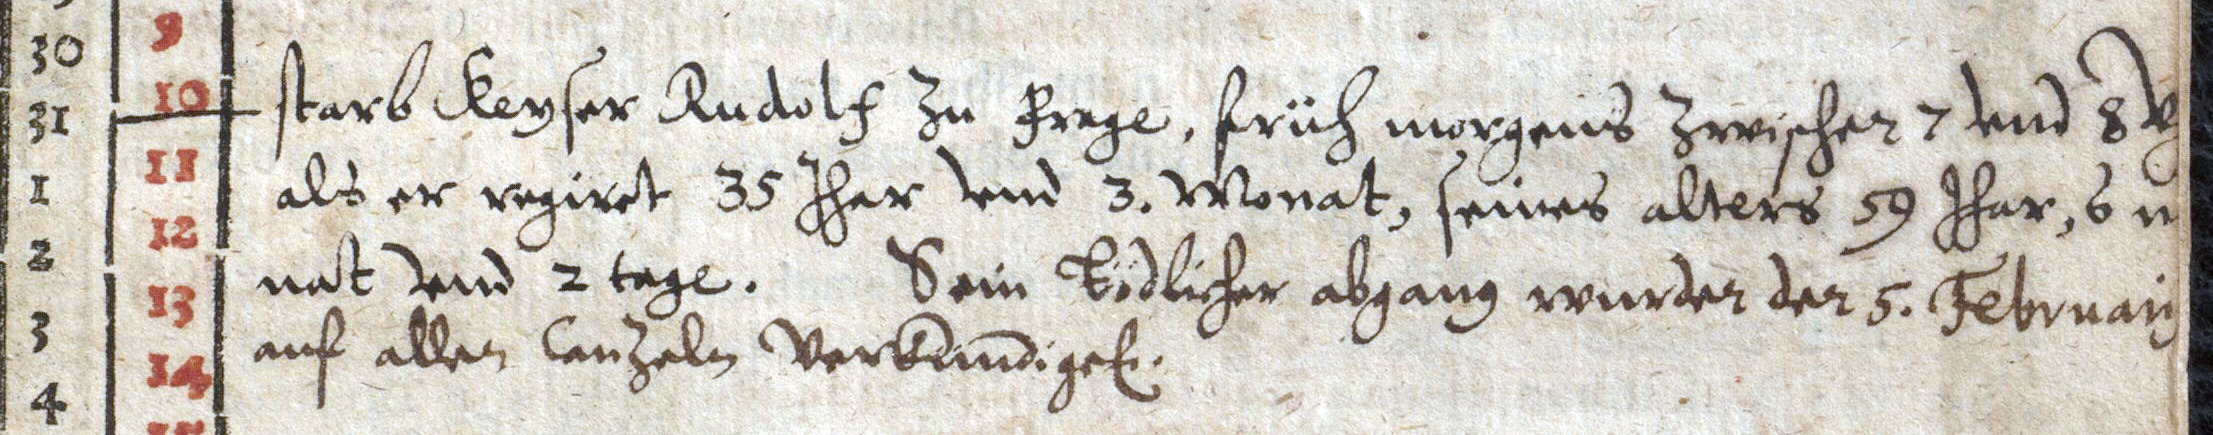 9
30
10
31 starb Keyser Rudolf zu Prage, früh morgens zwischen 7 vnd 8 V
11
1 als er regiret 35 Jhar vnd 3. Monat, seines alters 59 Jhar, 6 m
12
2 nat vnd 2 tage. Sein tödlicher abgang wurde den 5. Februarij
13
3 auf allen Canzeln verkündiget.
14
4
15